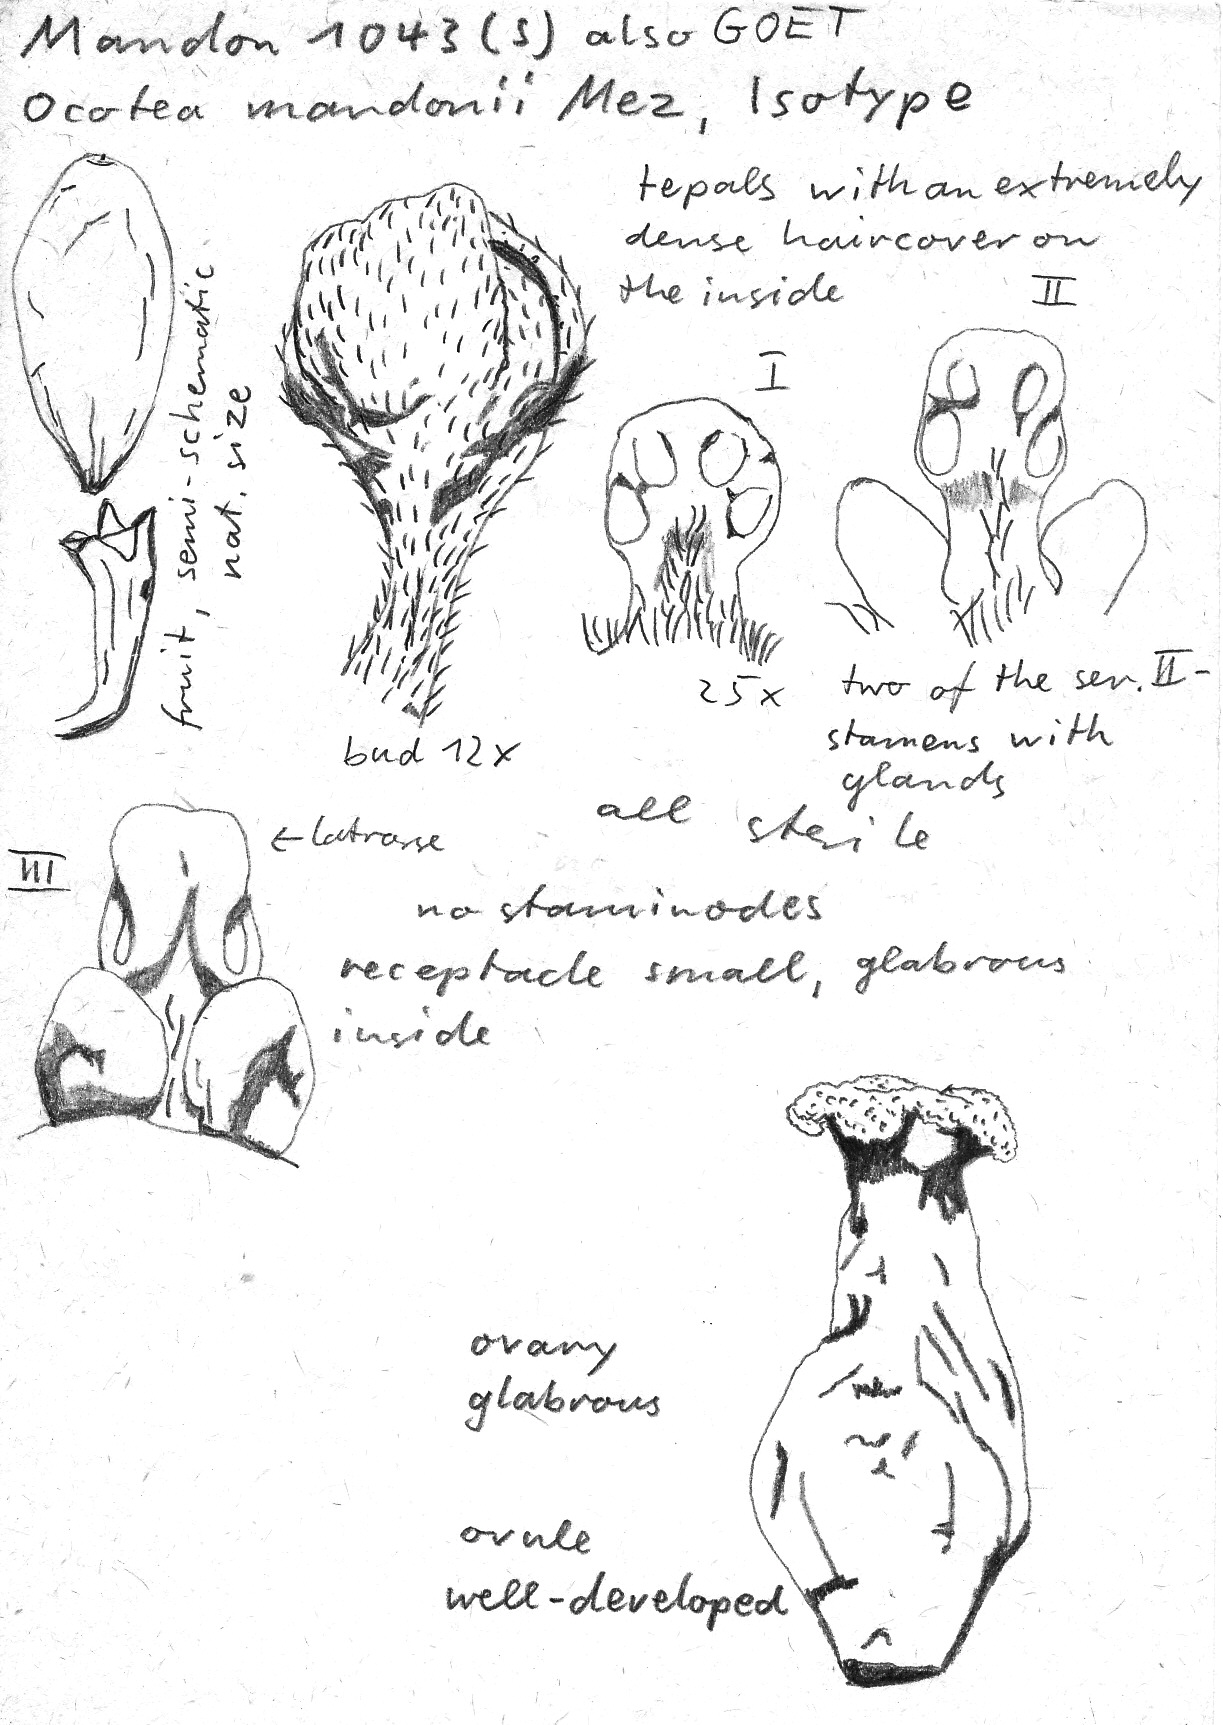 Mandon 1043 (S) also GOET
Ocotea mandonii Mez, Isotype
tepals with an extremely
dense haircover on
the inside
fruit, semi-schematic
nat. size
I
II
25x
bud 12x
two of the ser. II-
stamens with
glands
all sterile
III
← latrorse
no staminodes
receptacle small, glabrous
inside
ovary
glabrous
ovule
well-developed